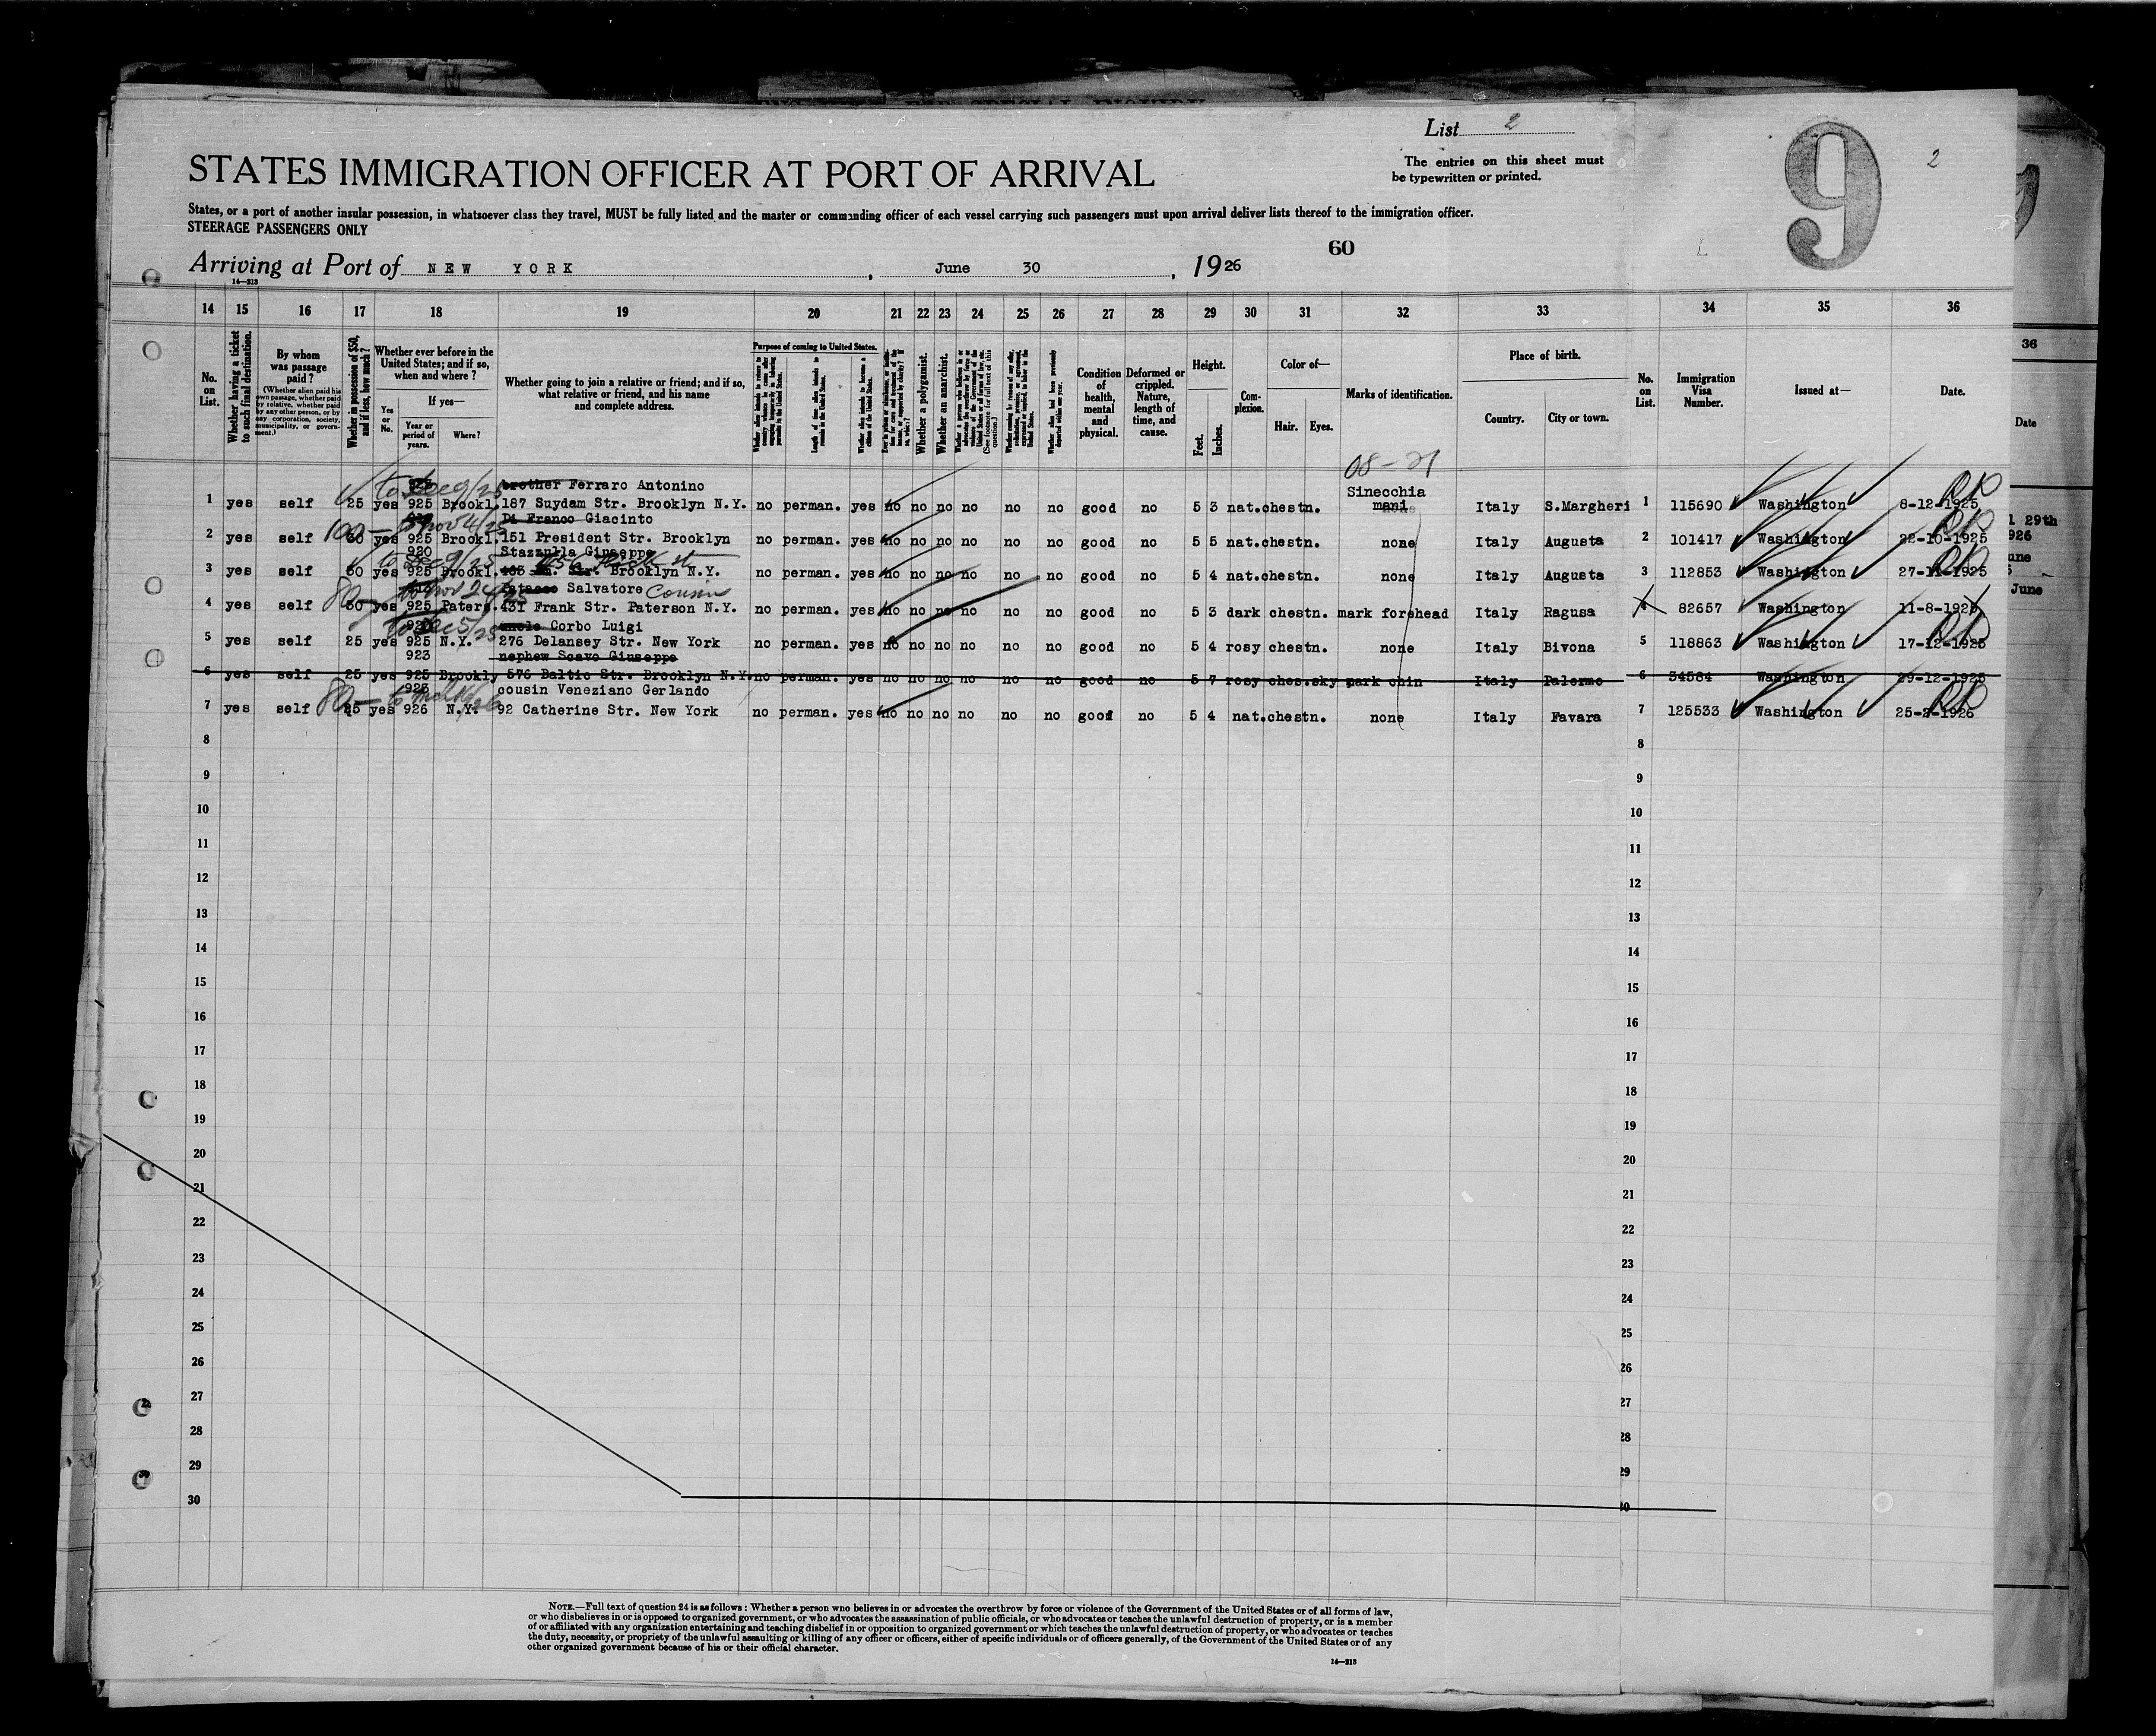 List 2
The entries on this sheet must
be typewritten or printed.
9
2
STATES IMMIGRATION OFFICER AT PORT OF ARRIVAL
States, or a port of another insular possession, in whatsoever class they travel, MUST be fully listed and the master or commanding officer of each vessel carrying such passengers must upon arrival deliver lists thereof to the immigration officer.
STEERAGE PASSENGERS ONLY
60
Arriving at Port of NEW YORK, June 30, 1926
14—213
14 15 16 17 18 19 20 21 22 23 24 25 26 27 28 29 30 31 32 33 34 35 36
No. on List.
Whether having a ticket to such final destination.
By whom was passage paid?
(Whether alien paid his own passage, whether paid by relative, whether paid by any other person, or by any corporation, society, municipality, or government.)
Whether in possession of $50, and if less, how much?
Whether ever before in the United States; and if so, when and where?
Yes or No.
If yes—
Year or period of years.
Where?
Whether going to join a relative or friend; and if so, what relative or friend, and his name and complete address.
Purpose of coming to United States.
Length of time alien intends to remain in the United States.
Whether alien intends to become a citizen of the United States.
Whether a polygamist.
Whether an anarchist.
(See footnote for full text of this question.)
Whether alien had been previously deported within one year.
Condition of health, mental and physical.
Deformed or crippled. Nature, length of time, and cause.
Height.
Feet. Inches.
Complexion.
Color of—
Hair. Eyes.
Marks of identification.
Place of birth.
Country. City or town.
No. on List.
Immigration Visa Number.
Issued at—
Date.
36
Date
08-21
brother Ferraro Antonino Sinecchia
1 yes self 25 yes 925 Brookl. 187 Suydam Str. Brooklyn N.Y. no perman. yes no no no no no no good no 5 3 nat. chestn. mani Italy S.Margheri 1 115690 Washington 8-12-1925
to Dec 9/25
Di Franco Giacinto
2 yes self 100— yes 925 Brookl. 151 President Str. Brooklyn no perman. yes no no no no no no good no 5 5 nat. chestn. none Italy Augusta 2 101417 Washington 22-10-1925
to Nov 4/25
920 Stazzulla Giuseppe
3 yes self 50 yes 925 Brookl. Str. Brooklyn N.Y. no perman. yes no no no no no no good no 5 4 nat. chestn. none Italy Augusta 3 112853 Washington 27-11-1925
Salvatore Cousin
4 yes self 80— yes 925 Paters. 431 Frank Str. Paterson N.Y. no perman. yes no no no no no no good no 5 3 dark chestn. mark forehead Italy Ragusa 4 82657 Washington 11-8-1925
uncle Corbo Luigi
5 yes self 25 yes 925 N.Y. 276 Delansey Str. New York no perman. yes no no no no no no good no 5 4 rosy chestn. none Italy Bivona 5 118863 Washington 17-12-1925
923 nephew Scavo Giuseppe
6 yes self 25 yes 925 Brookly 576 Baltic Str. Brooklyn N.Y. no perman. yes no no no no no no good no 5 7 rosy ches. sky mark chin Italy Palermo 6 34584 Washington 29-12-1925
923 cousin Veneziano Gerlando
7 yes self 80— 45 yes 926 N.Y. 92 Catherine Str. New York no perman. yes no no no no no no good no 5 4 nat. chestn. none Italy Favara 7 125533 Washington 25-2-1926
29th
926
June
8 8
9 9
10 10
11 11
12 12
13 13
14 14
15 15
16 16
17 17
18 18
19 19
20 20
21 21
22 22
23 23
24 24
25 25
26 26
27 27
28 28
29 29
30 30
NOTE.—Full text of question 24 is as follows: Whether a person who believes in or advocates the overthrow by force or violence of the Government of the United States or of all forms of law,
or who disbelieves in or is opposed to organized government, or who advocates the assassination of public officials, or who advocates or teaches the unlawful destruction of property, or is a member
of or affiliated with any organization entertaining and teaching disbelief in or opposition to organized government or which teaches the unlawful destruction of property, or who advocates or teaches
the duty, necessity, or propriety of the unlawful assaulting or killing of any officer or officers, either of specific individuals or of officers generally, of the Government of the United States or of any
other organized government because of his or their official character.
14—213